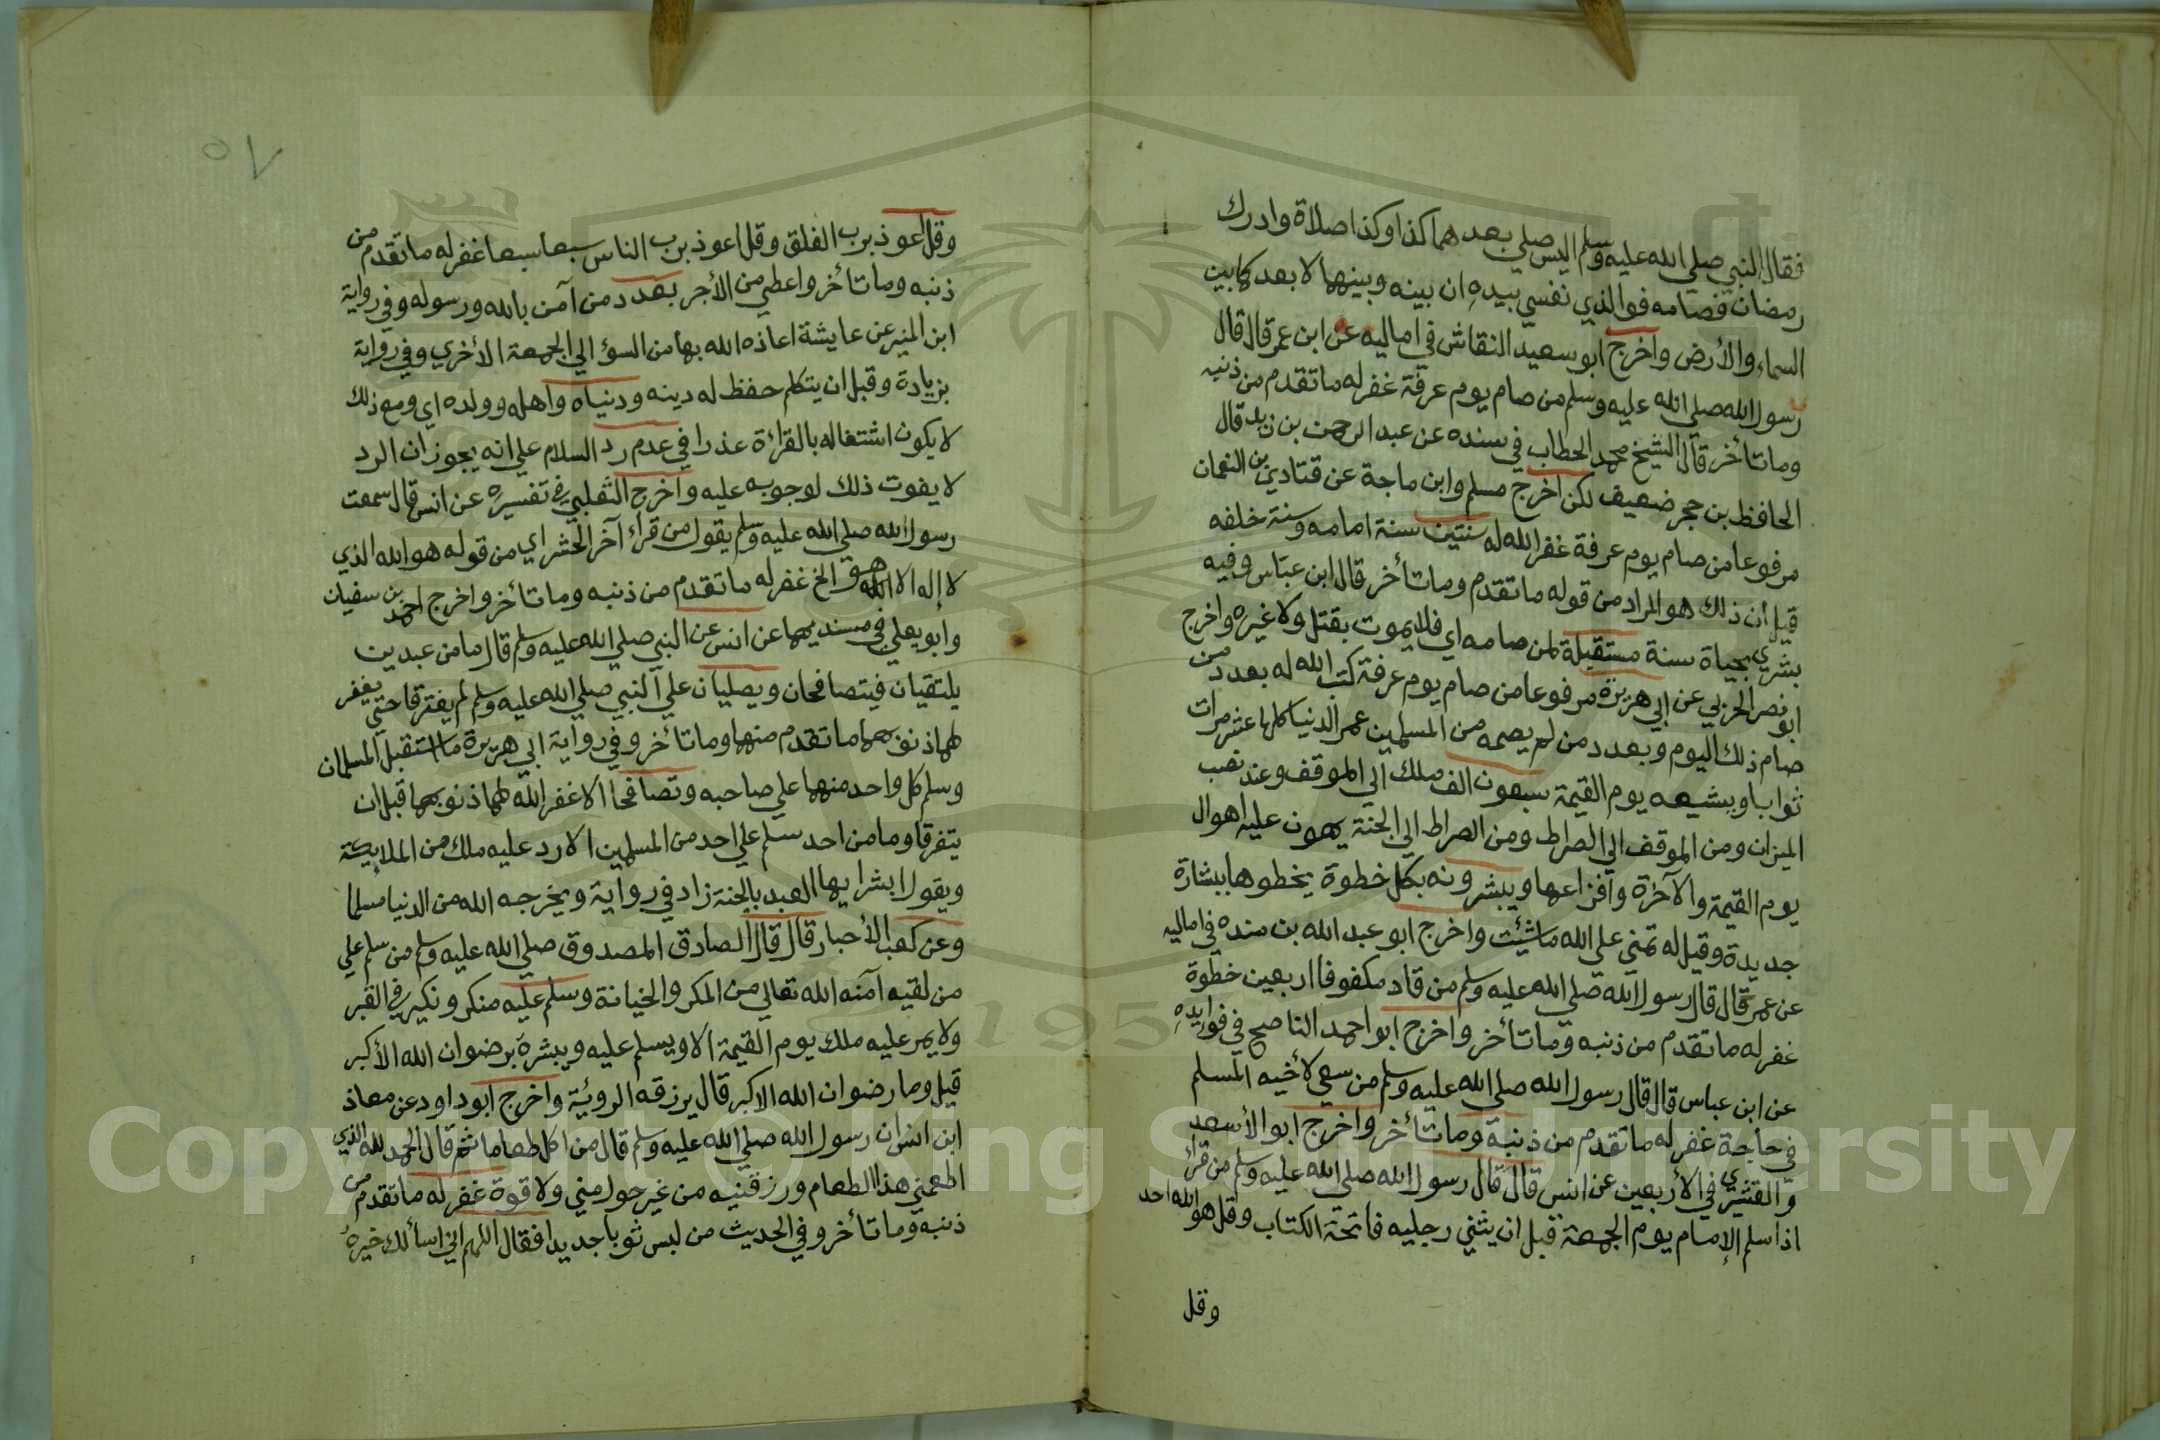 فقال النبي صلي الله عليه وسلم اليس صلي بعدهما كذا وكذا صلاة وادرك
رمضان فصامه فوالذي نفسي بيده ان بينه وبينهما لابعد كما بين
السماء والأرض واخرج ابو سعيد النقاش في اماليه عن ابن عمر قال قال
رسول الله صلي الله عليه وسلم من صام يوم عرفة غفر له ما تقدم من ذنبه
وما تأخر قال الشيخ محمد الحطاب في سنده عن عبد الرحمن بن زيد قال
الحافظ بن حجر ضعيف لكن اخرج مسلم وابن ماجة عن قتادة بن النعمان
مرفوعا من صام يوم عرفة غفر الله له سنتين سنة امامه وسنة خلفه
قيل ان ذلك هو المراد من قوله ما تقدم وما تأخر قال ابن عباس وفيه
بشري بحياة سنة مستقبلة لمن صامه اي فلا يموت بقتل ولا غيره واخرج
ابو نصر الحربي عن ابي هريرة مرفوعا من صام يوم عرفة كتب الله له بعدد من
صام ذلك اليوم وبعدد من لم يصمه من المسلمين عمر الدنيا كلها عشر مرات
ثوابا ويشيعه يوم القيمة سبعون الف ملك الي الموقف وعند نصب
الميزان ومن الموقف الي الصراط ومن الصراط الي الجنة يهون عليه اهوال
يوم القيمة والآخرة وافزاعها ويبشرونه بكل خطوة يخطوها ببشارة
جديدة وقيل له تمني علي الله ما شئت واخرج ابو عبد الله بن منده في اماليه
عن عمر قال قال رسول الله صلي الله عليه وسلم من قاد مكفوفا اربعين خطوة
غفر له ما تقدم من ذنبه وما تأخر واخرج ابو احمد الناصح في فوايده
عن ابن عباس قال قال رسول الله صلي الله عليه وسلم من سعي لأخيه المسلم
في حاجة غفر له ما تقدم من ذنبه وما تأخر واخرج ابو الأسعد
والقشيري في الأربعين عن انس قال قال رسول الله صلي الله عليه وسلم من قرأ
اذا سلم الإمام يوم الجمعة قبل ان يثني رجليه فاتحة الكتاب وقل هو الله احد
وقل
٥٧
وقل اعوذ برب الفلق وقل اعوذ برب الناس سبعا سبعا غفر له ما تقدم من
ذنبه وما تأخر واعطي من الأجر بعدد من آمن بالله ورسوله وفي رواية
ابن المنير عن عايشة اعاذه الله بها من السؤ الي الجمعة الأخري وفي رواية
بزيادة وقبل ان يتكلم حفظ له دينه ودنياه واهله وولده اي ومع ذلك
لا يكون اشتغاله بالقراءة عذرا في عدم رد السلام علي انه يجوز ان الرد
لا يفوت ذلك لوجوبه عليه واخرج الثعلبي في تفسيره عن انس قال سمعت
رسول الله صلي الله عليه وسلم يقول من قرأ آخر الحشر اي من قوله هو الله الذي
لا إله الا هو الخ غفر له ما تقدم من ذنبه وما تأخر واخرج احمد بن سفيان
وابو يعلي في مسنديهما عن انس عن النبي صلي الله عليه وسلم قال ما من عبدين
يلتقيان فيتصافحان ويصليان علي النبي صلي الله عليه وسلم لم يفترقا حتي يغفر
لهما ذنوبهما ما تقدم منها وما تأخر وفي رواية ابي هريرة ما استقبل المسلمان
وسلم كل واحد منهما علي صاحبه وتصافحا الا غفر الله لهما ذنوبهما قبل ان
يتفرقا وما من احد سلم علي احد من المسلمين الا رد عليه ملك من الملايكة
ويقول ابشر ايها العبد بالجنة زاد في رواية ويخرجه الله من الدنيا مسلما
وعن كعب الأحبار قال قال الصادق المصدوق صلي الله عليه وسلم من سلم علي
من لقيه آمنه الله تعالي من المكر والخيانة وسلم عليه منكر ونكير في القبر
ولا يمر عليه ملك يوم القيمة الا ويسلم عليه ويبشره برضوان الله الأكبر
قيل وما رضوان الله الاكبر قال يرزقه الروئية واخرج ابو داود عن معاذ
ابن انس ان رسول الله صلي الله عليه وسلم قال من اكل طعاما ثم قال الحمد لله الذي
اطعمني هذا الطعام ورزقنيه من غير حول مني ولا قوة غفر له ما تقدم من
ذنبه وما تأخر وفي الحديث من لبس ثوبا جديدا فقال اللهم اني اسألك خيره
Copyright © King Saud University
195